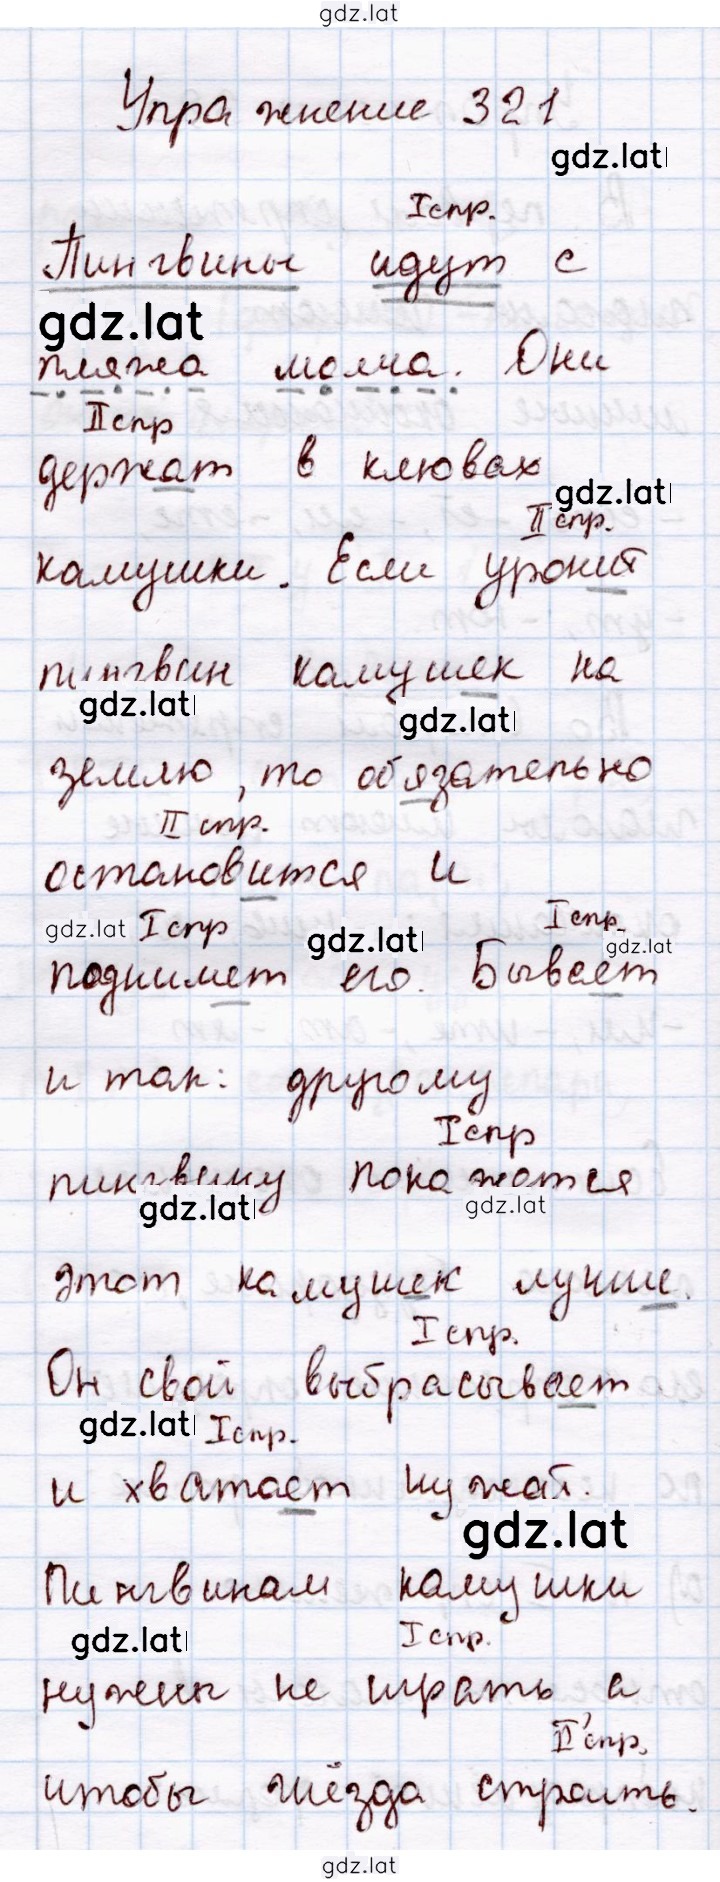 gdz.lat
Упражнение 321
gdz.lat
I спр.
Пингвины идут с
gdz.lat
пляжа молча. Они
II спр
держат в клювах
gdz.lat
II спр.
камушки. Если уронит
пингвин камушек на
gdz.lat
gdz.lat
землю, то обязательно
II спр.
остановится и
gdz.lat I спр gdz.lat I спр. gdz.lat
поднимет его. Бывает
и так: другому
I спр
пингвину покажется
gdz.lat gdz.lat
этот камушек лучше.
I спр.
Он свой выбрасывает
gdz.lat I спр.
и хватает чужой.
gdz.lat
Пингвинам камушки
gdz.lat I спр.
нужны не играть, а
II спр.
чтобы гнёзда строить.
gdz.lat